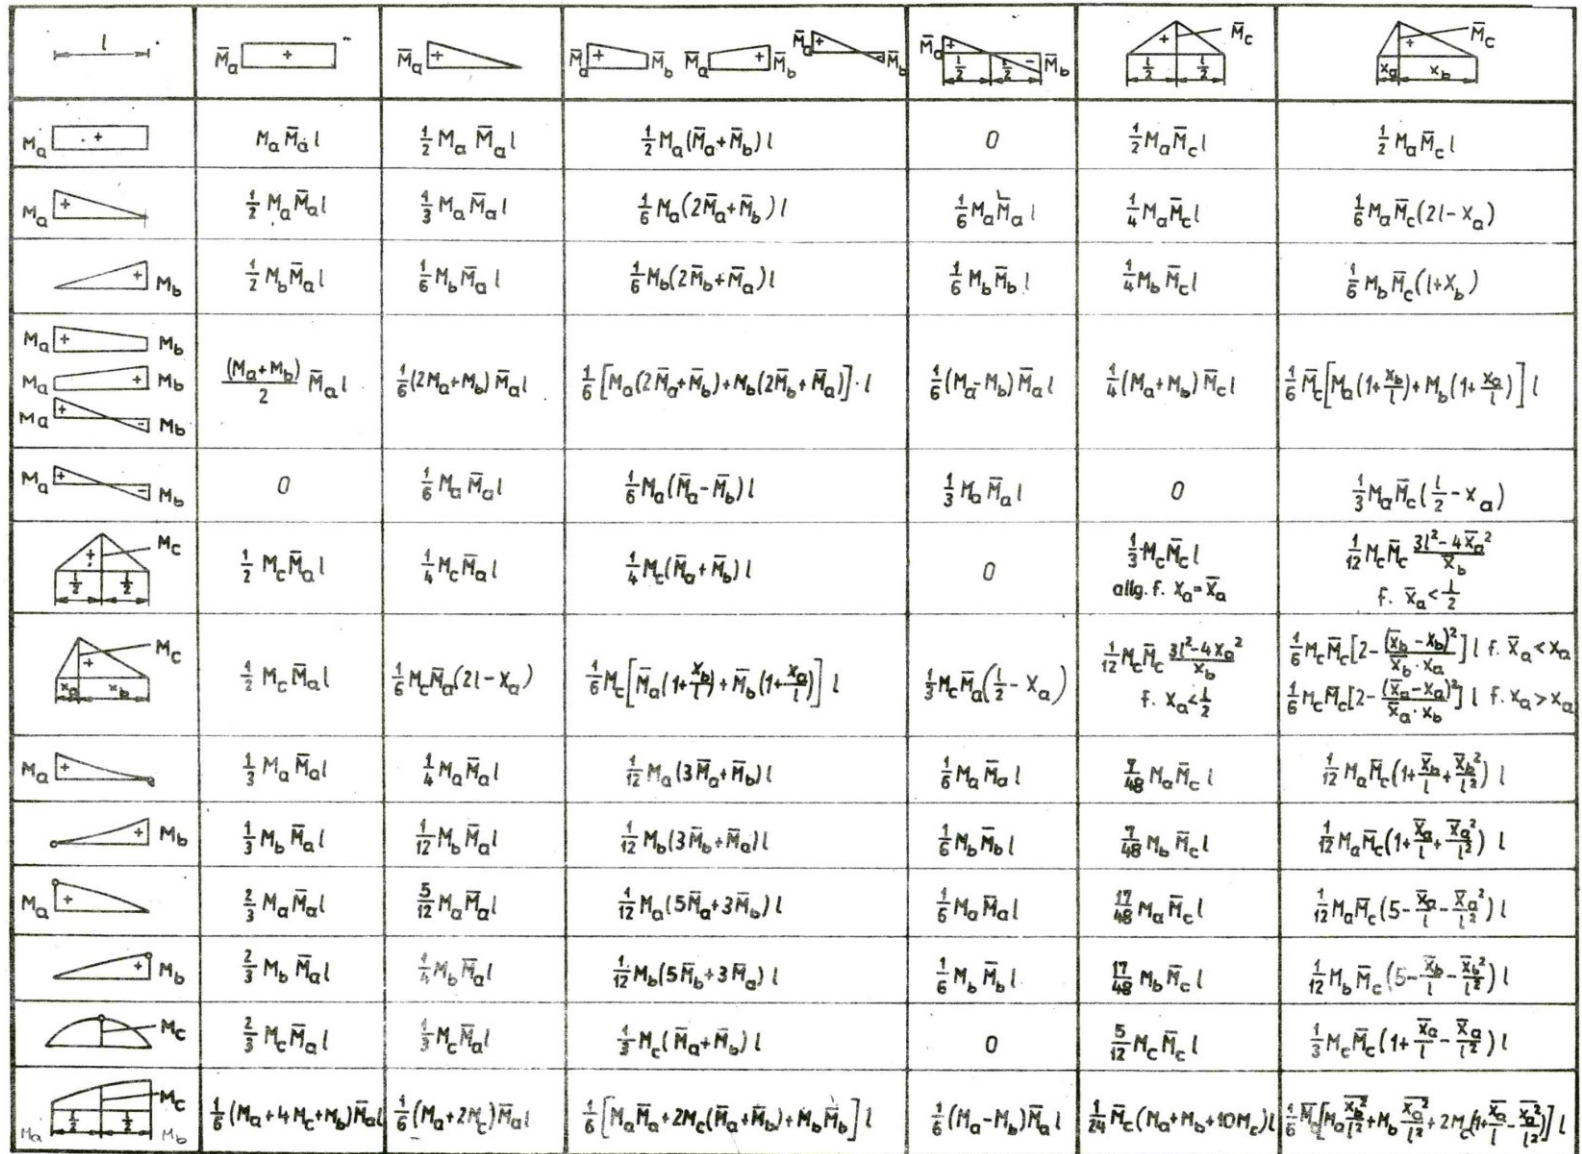 l | M̄a + | M̄a + | M̄a + M̄b M̄a + M̄b M̄a + - M̄b | M̄a + l/2 l/2 - M̄b | + M̄c l/2 l/2 | + M̄c xa xb
Ma + | Ma M̄a l | 1/2 Ma M̄a l | 1/2 Ma (M̄a + M̄b) l | 0 | 1/2 Ma M̄c l | 1/2 Ma M̄c l
Ma + | 1/2 Ma M̄a l | 1/3 Ma M̄a l | 1/6 Ma (2M̄a + M̄b) l | 1/6 Ma M̄a l | 1/4 Ma M̄c l | 1/6 Ma M̄c (2l - xa)
+ Mb | 1/2 Mb M̄a l | 1/6 Mb M̄a l | 1/6 Mb (2M̄b + M̄a) l | 1/6 Mb M̄b l | 1/4 Mb M̄c l | 1/6 Mb M̄c (l + xb)
Ma + Mb
Ma + Mb | (Ma + Mb)/2 M̄a l | 1/6 (2Ma + Mb) M̄a l | 1/6 [Ma (2M̄a + M̄b) + Mb (2M̄b + M̄a)] · l | 1/6 (Ma - Mb) M̄a l | 1/4 (Ma + Mb) M̄c l | 1/6 M̄c [Ma (1 + xb/l) + Mb (1 + xa/l)] l
Ma + - Mb
Ma + - Mb | 0 | 1/6 Ma M̄a l | 1/6 Ma (M̄a - M̄b) l | 1/3 Ma M̄a l | 0 | 1/3 Ma M̄c (l/2 - xa)
+ Mc l/2 l/2 | 1/2 Mc M̄a l | 1/4 Mc M̄a l | 1/4 Mc (M̄a + M̄b) l | 0 | 1/3 Mc M̄c l allg. f. xa = x̄a | 1/12 Mc M̄c (3l² - 4x̄a²)/x̄b f. x̄a < l/2
+ Mc xa xb | 1/2 Mc M̄a l | 1/6 Mc M̄a (2l - xa) | 1/6 Mc [M̄a (1 + xb/l) + M̄b (1 + xa/l)] l | 1/3 Mc M̄a (l/2 - xa) | 1/12 Mc M̄c (3l² - 4xa²)/xb f. xa < l/2 | 1/6 Mc M̄c [2 - (x̄b - xb)²/(x̄b · xa)] l f. x̄a < xa
1/6 Mc M̄c [2 - (x̄a - xa)²/(x̄a · xb)] l f. xa > xa
Ma + | 1/3 Ma M̄a l | 1/4 Ma M̄a l | 1/12 Ma (3M̄a + M̄b) l | 1/6 Ma M̄a l | 7/48 Ma M̄c l | 1/12 Ma M̄c (1 + x̄b/l + x̄b²/l²) l
+ Mb | 1/3 Mb M̄a l | 1/12 Mb M̄a l | 1/12 Mb (3M̄b + M̄a) l | 1/6 Mb M̄b l | 7/48 Mb M̄c l | 1/12 Ma M̄c (1 + x̄a/l + x̄a²/l²) l
Ma + | 2/3 Ma M̄a l | 5/12 Ma M̄a l | 1/12 Ma (5M̄a + 3M̄b) l | 1/6 Ma M̄a l | 17/48 Ma M̄c l | 1/12 Ma M̄c (5 - x̄a/l - x̄a²/l²) l
+ Mb | 2/3 Mb M̄a l | 1/4 Mb M̄a l | 1/12 Mb (5M̄b + 3M̄a) l | 1/6 Mb M̄b l | 17/48 Mb M̄c l | 1/12 Mb M̄c (5 - x̄b/l - x̄b²/l²) l
Mc | 2/3 Mc M̄a l | 1/3 Mc M̄a l | 1/3 Mc (M̄a + M̄b) l | 0 | 5/12 Mc M̄c l | 1/3 Mc M̄c (1 + x̄a/l - x̄a/l²) l
Ma l/2 l/2 Mc Mb | 1/6 (Ma + 4Mc + Mb) M̄a l | 1/6 (Ma + 2Mc) M̄a l | 1/6 [Ma M̄a + 2Mc (M̄a + M̄b) + Mb M̄b] l | 1/6 (Ma - Mb) M̄a l | 1/24 M̄c (Ma + Mb + 10Mc) l | 1/6 [Ma x̄b²/l² + Mb x̄a²/l² + 2Mc (1 + x̄a/l - x̄a²/l²)] l